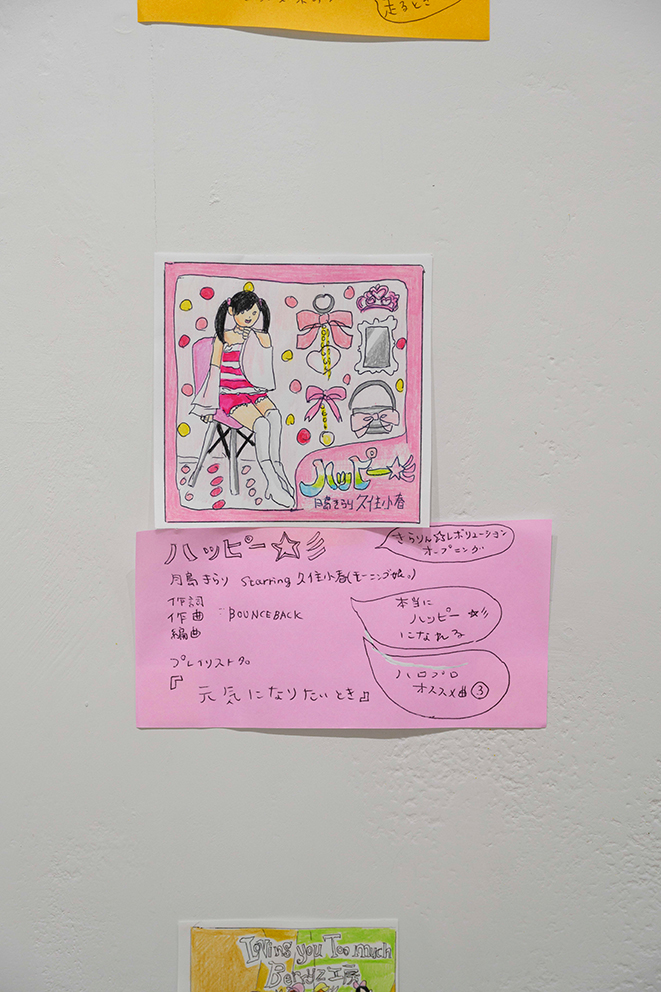 走るとき
ハッピー☆彡
月島きらり 久住小春
ハッピー☆彡
月島きらり starring 久住小春(モーニング娘。)
作詞
作曲 : BOUNCEBACK
編曲
プレイリスト名
『元気になりたいとき』
きらりん☆レボリューション
オープニング
本当に
ハッピー☆彡
になれる
ハロプロ
オススメ曲③
Loving you Too much
Berryz工房